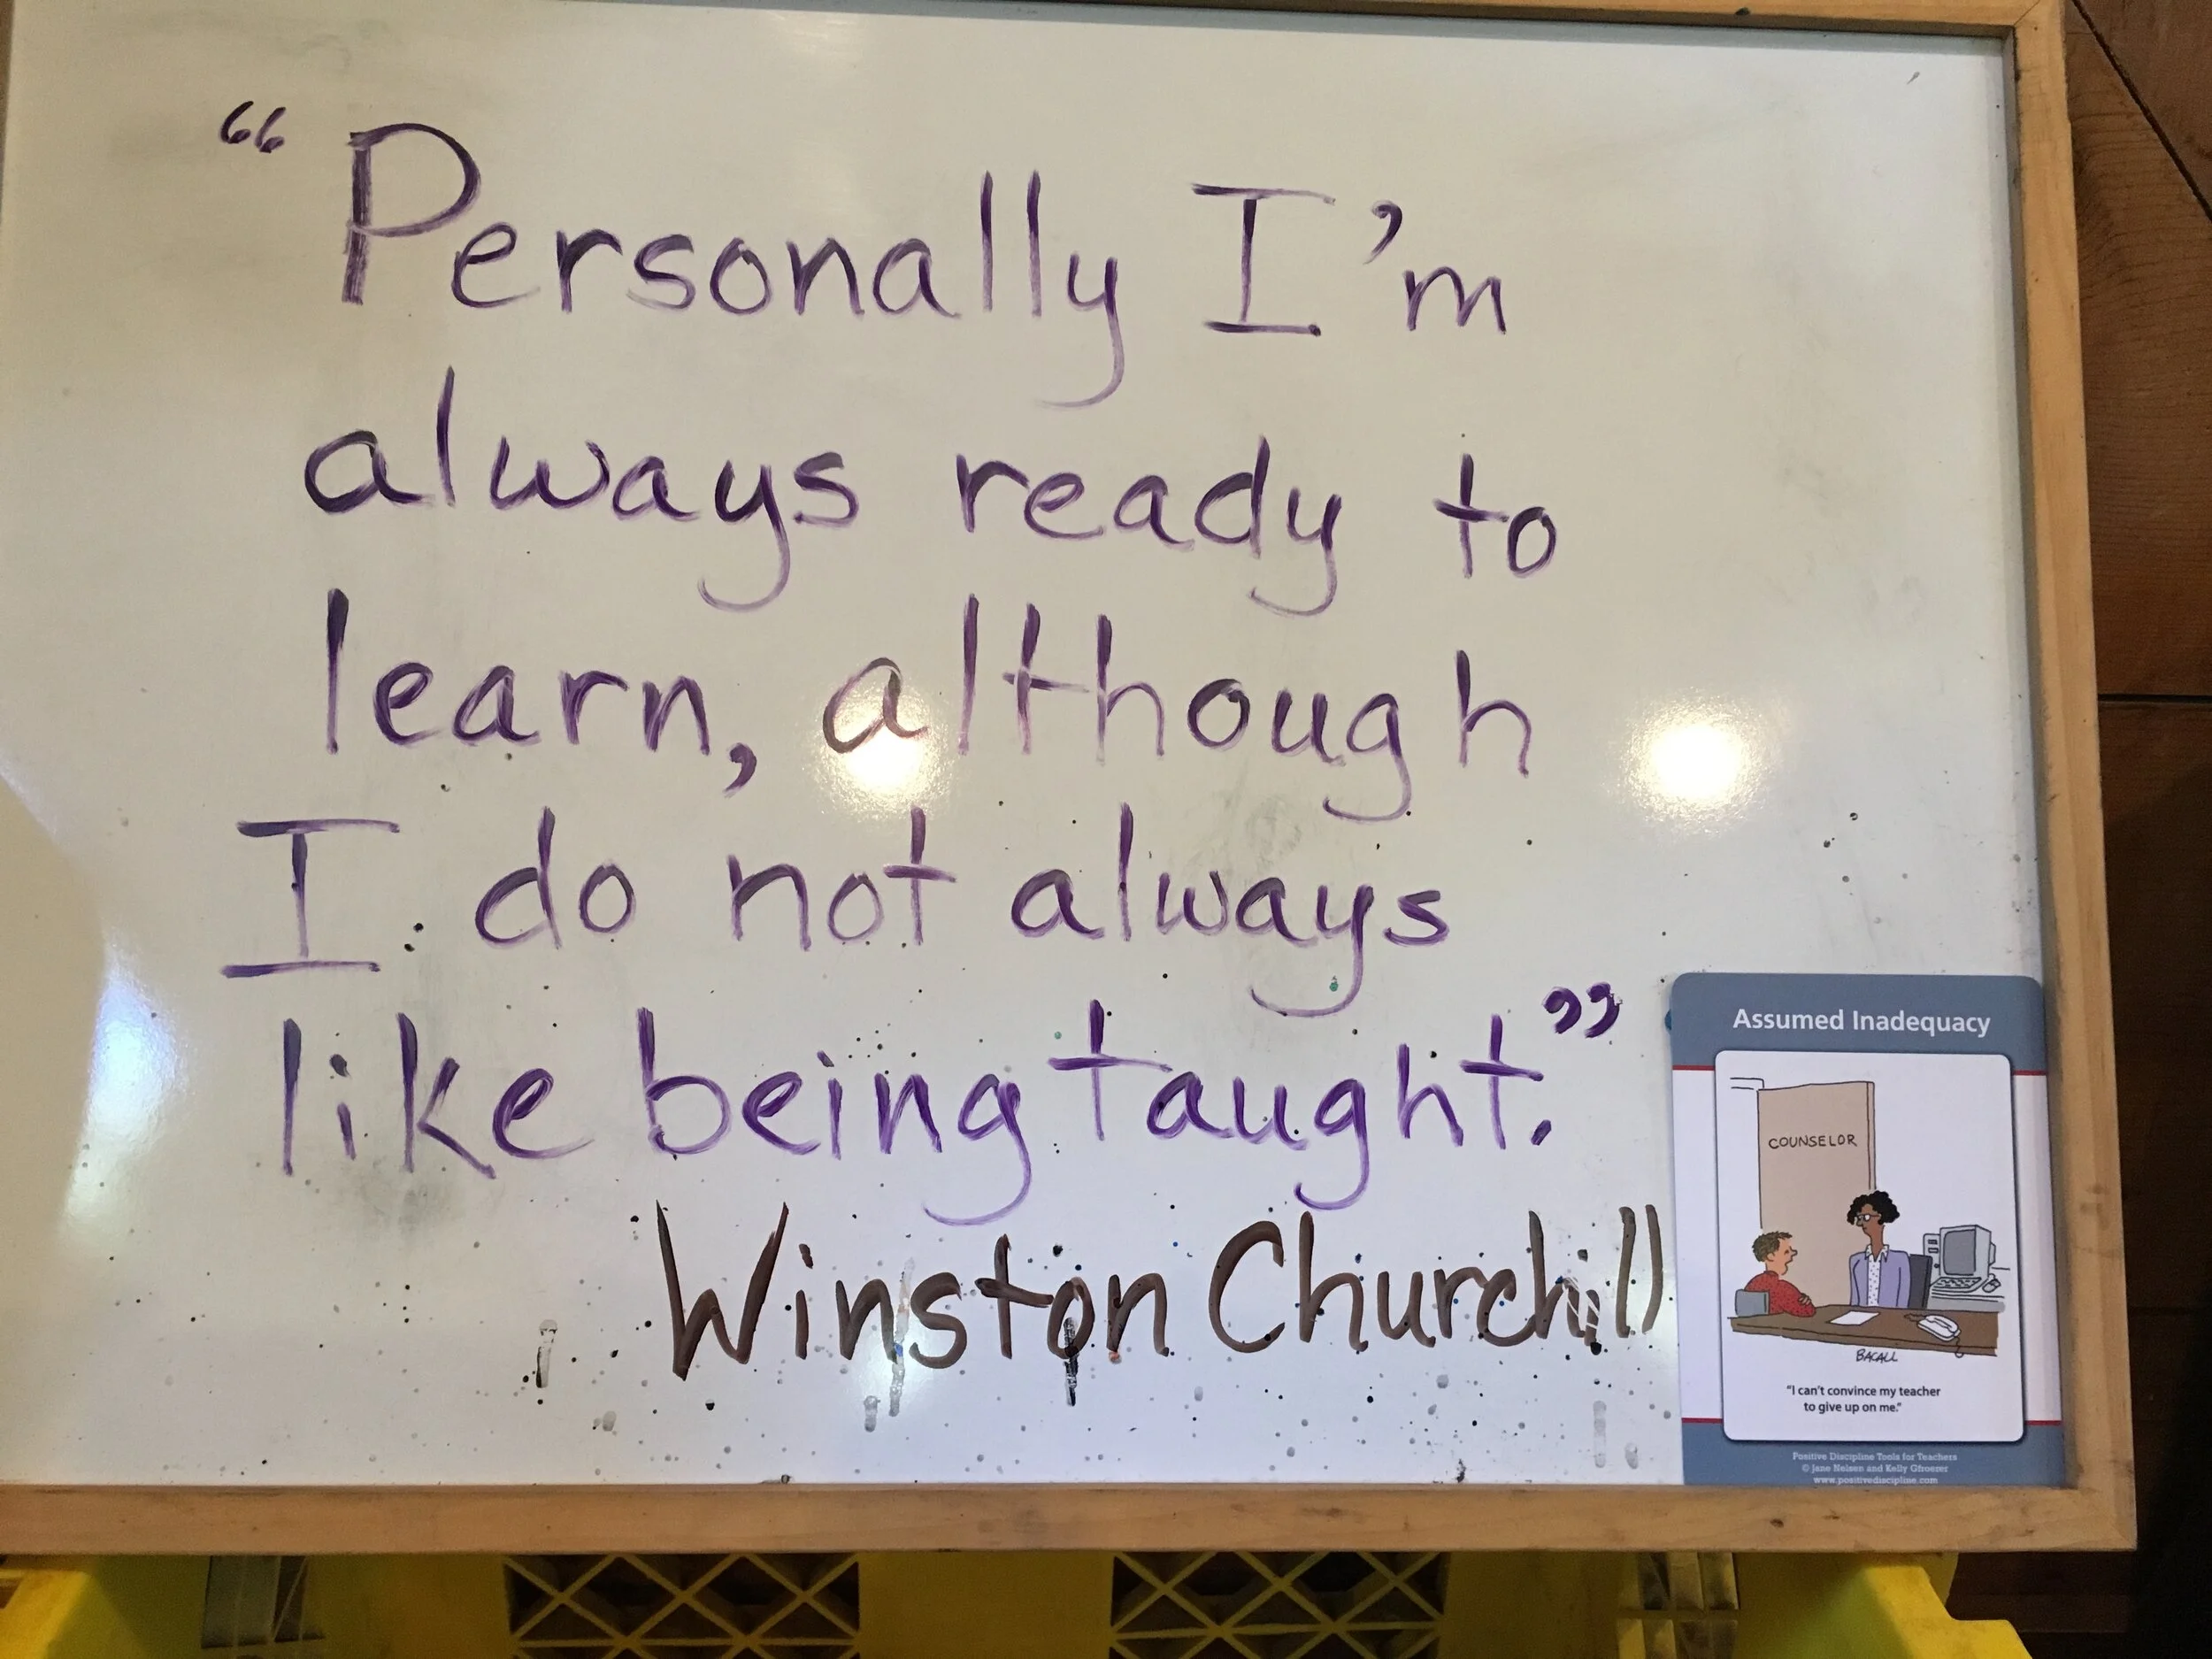 “Personally I’m
always ready to
learn, although
I do not always
like being taught.”
Winston Churchill
Assumed Inadequacy
COUNSELOR
BACALL
“I can’t convince my teacher
to give up on me.”
Positive Discipline Tools for Teachers
© Jane Nelsen and Kelly Gfroerer
www.positivediscipline.com